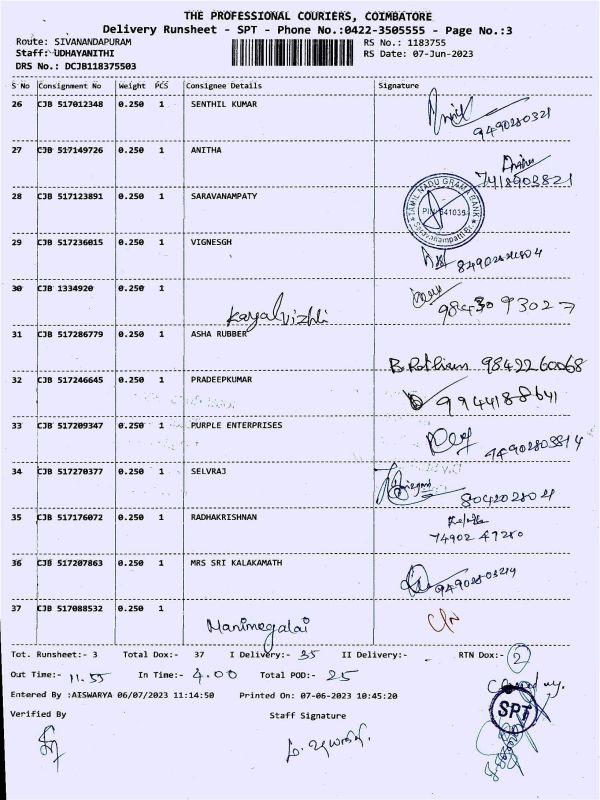 THE PROFESSIONAL COURIERS, COIMBATORE
Delivery Runsheet - SPT - Phone No.:0422-3505555 - Page No.:3
Route: SIVANANDAPURAM RS No.: 1183755
Staff: UDHAYANITHI RS Date: 07-Jun-2023
DRS No.: DCJB118375503
S No Consignment No Weight PCS Consignee Details Signature
26 CJB 517012348 0.250 1 SENTHIL KUMAR
9490280321
27 CJB 517149726 0.250 1 ANITHA
7418903821
28 CJB 517123891 0.250 1 SARAVANAMPATY
TAMIL NADU GRAMA BANK
29 CJB 517236015 0.250 1 VIGNESGH
30 CJB 1334920 0.250 1
Kayalvizhli 9843093027
31 CJB 517286779 0.250 1 ASHA RUBBER
9842260068
32 CJB 517246645 0.250 1 PRADEEPKUMAR
9944188641
33 CJB 517209347 0.250 1 PURPLE ENTERPRISES
34 CJB 517270377 0.250 1 SELVRAJ
35 CJB 517176072 0.250 1 RADHAKRISHNAN
36 CJB 517207863 0.250 1 MRS SRI KALAKAMATH
37 CJB 517088532 0.250 1
Manimegalai
Tot. Runsheet:- 3 Total Dox:- 37 I Delivery:- 35 II Delivery:- RTN Dox:- 2
Out Time:- 11.55 In Time:- 4.00 Total POD:- 25
Entered By :AISWARYA 06/07/2023 11:14:50 Printed On: 07-06-2023 10:45:20
Verified By Staff Signature
SPT